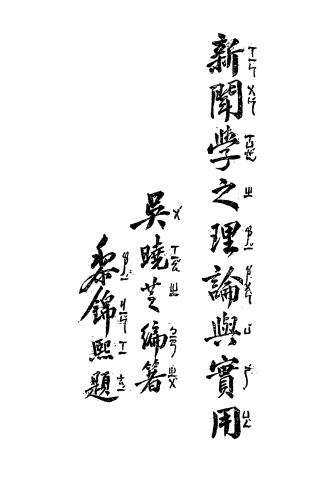 新聞學之理論與實用
吳曉芝編著
黎錦熙題